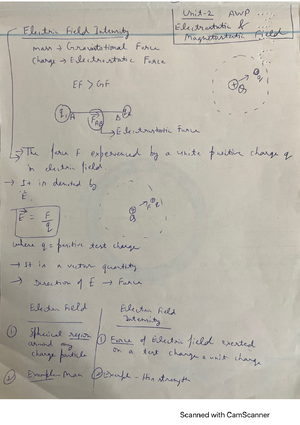 Unit-2 AWP
Electrostatic &
Magnetostatic Field
Electric Field Intensity
mass → Gravitational Force
charge → Electrostatic Force
EF > GF
→ Electrostatic Force
→ The force F experienced by a unit positive charge q
in electric field
→ It is denoted by
E
E = F/q
where q = positive test charge
→ It is a vector quantity
→ Direction of E → Force
Electric Field
Electric Field
Intensity
① Spherical region
around any
charge particle
① Force of Electric field exerted
on a test charge = unit charge
② Example - Man
② Example - His strength
Scanned with CamScanner